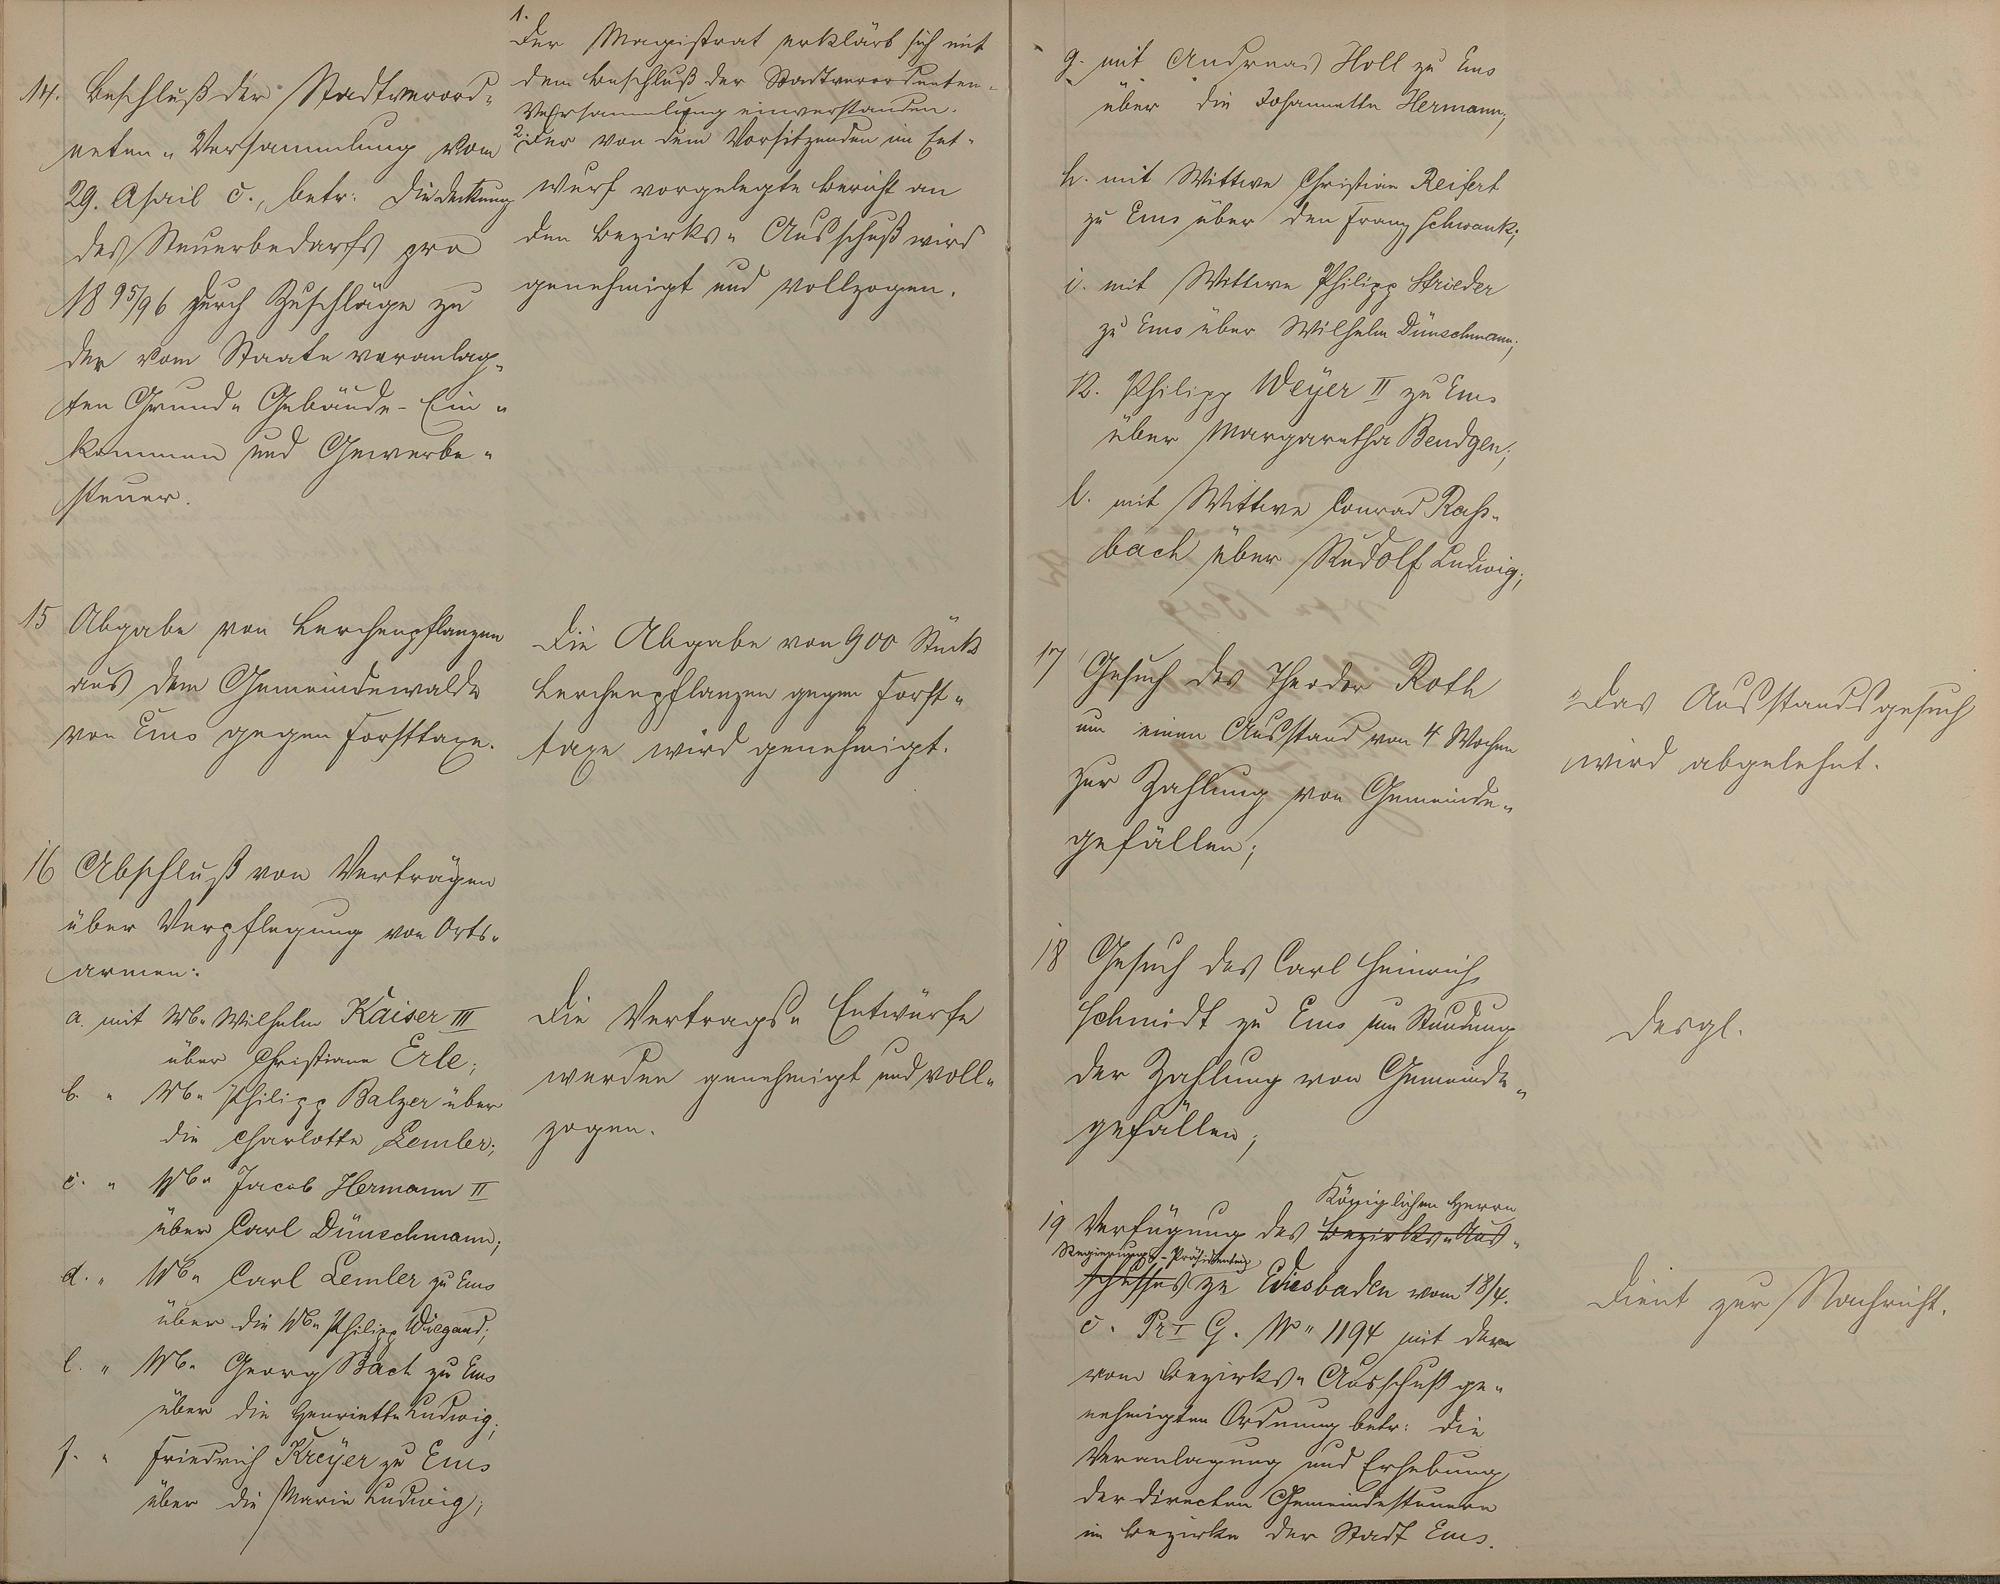 14. Beschluß der Stadtverord-
neten-Versammlung vom
29. April c., betr: die Deckung
des Steuerbedarfs pro
1895/96 durch Zuschläge zu
der vom Staate veranlag-
ten Grund- Gebäude- Ein-
kommen und Gewerbe-
steuer.
1.
Der Magistrat erklärt sich mit
dem Beschluß der Stadtverordneten-
Versammlung einverstanden.
2. Der von dem Vorsitzenden im Ent-
wurf vorgelegte Bericht an
den Bezirks-Ausschuß wird
genehmigt und vollzogen.
15 Abgabe von Lerchenpflanzen
aus dem Gemeindewalde
von Ems gegen Forsttaxe.
Die Abgabe von 900 Stück
Lerchenpflanzen gegen Forst-
taxe wird genehmigt.
16 Abschluß von Verträgen
über Verpflegung von Orts-
armen:
a. mit Wb. Wilhelm Kaiser III
über Christiane Erle;
b. " Wb. Philipp Balzer über
die Charlotte Lemler;
c. " Wb. Jacob Hermann II
über Carl Dünschmann;
d. " Wb. Carl Lemler zu Ems
über die Wb. Philipp Wiegand;
e. " Wb. Georg Bach zu Ems
über die Henriette Ludwig;
f. " Friedrich Kreÿer zu Ems
über die Marie Ludwig;
Die Vertrags-Entwürfe
werden genehmigt und voll-
zogen.
g. mit Andreas Holl zu Ems
über die Johannette Hermann;
h. mit Wittwe Christian Reifert
zu Ems über den Franz Schwank;
i. mit Wittwe Philipp Strieder
zu Ems über Wilhelm Dünschmann;
k. Philipp Weÿer II zu Ems
über Margaretha Bendgen;
l. mit Wittwe Conrad Rass-
bach über Rudolf Ludwig;
17 Gesuch des Theodor Roth
um einen Ausstand von 4 Wochen
zur Zahlung von Gemeinde-
gefällen;
Das Ausstandsgesuch
wird abgelehnt.
18 Gesuch des Carl Heinrich
Schmidt zu Ems um Stundung
der Zahlung von Gemeinde-
gefällen;
desgl.
Königlichen Herrn
19 Verfügung des Bezirks-Aus-
Regierungs-Präsidenten
schusses zu Wiesbaden vom 18/4.
c. Pr I G. No 1194 mit der
vom Bezirks-Ausschuß ge-
nehmigten Ordnung betr: die
Veranlagung und Erhebung
der directen Gemeindesteuern
im Bezirke der Stadt Ems.
Dient zur Nachricht.